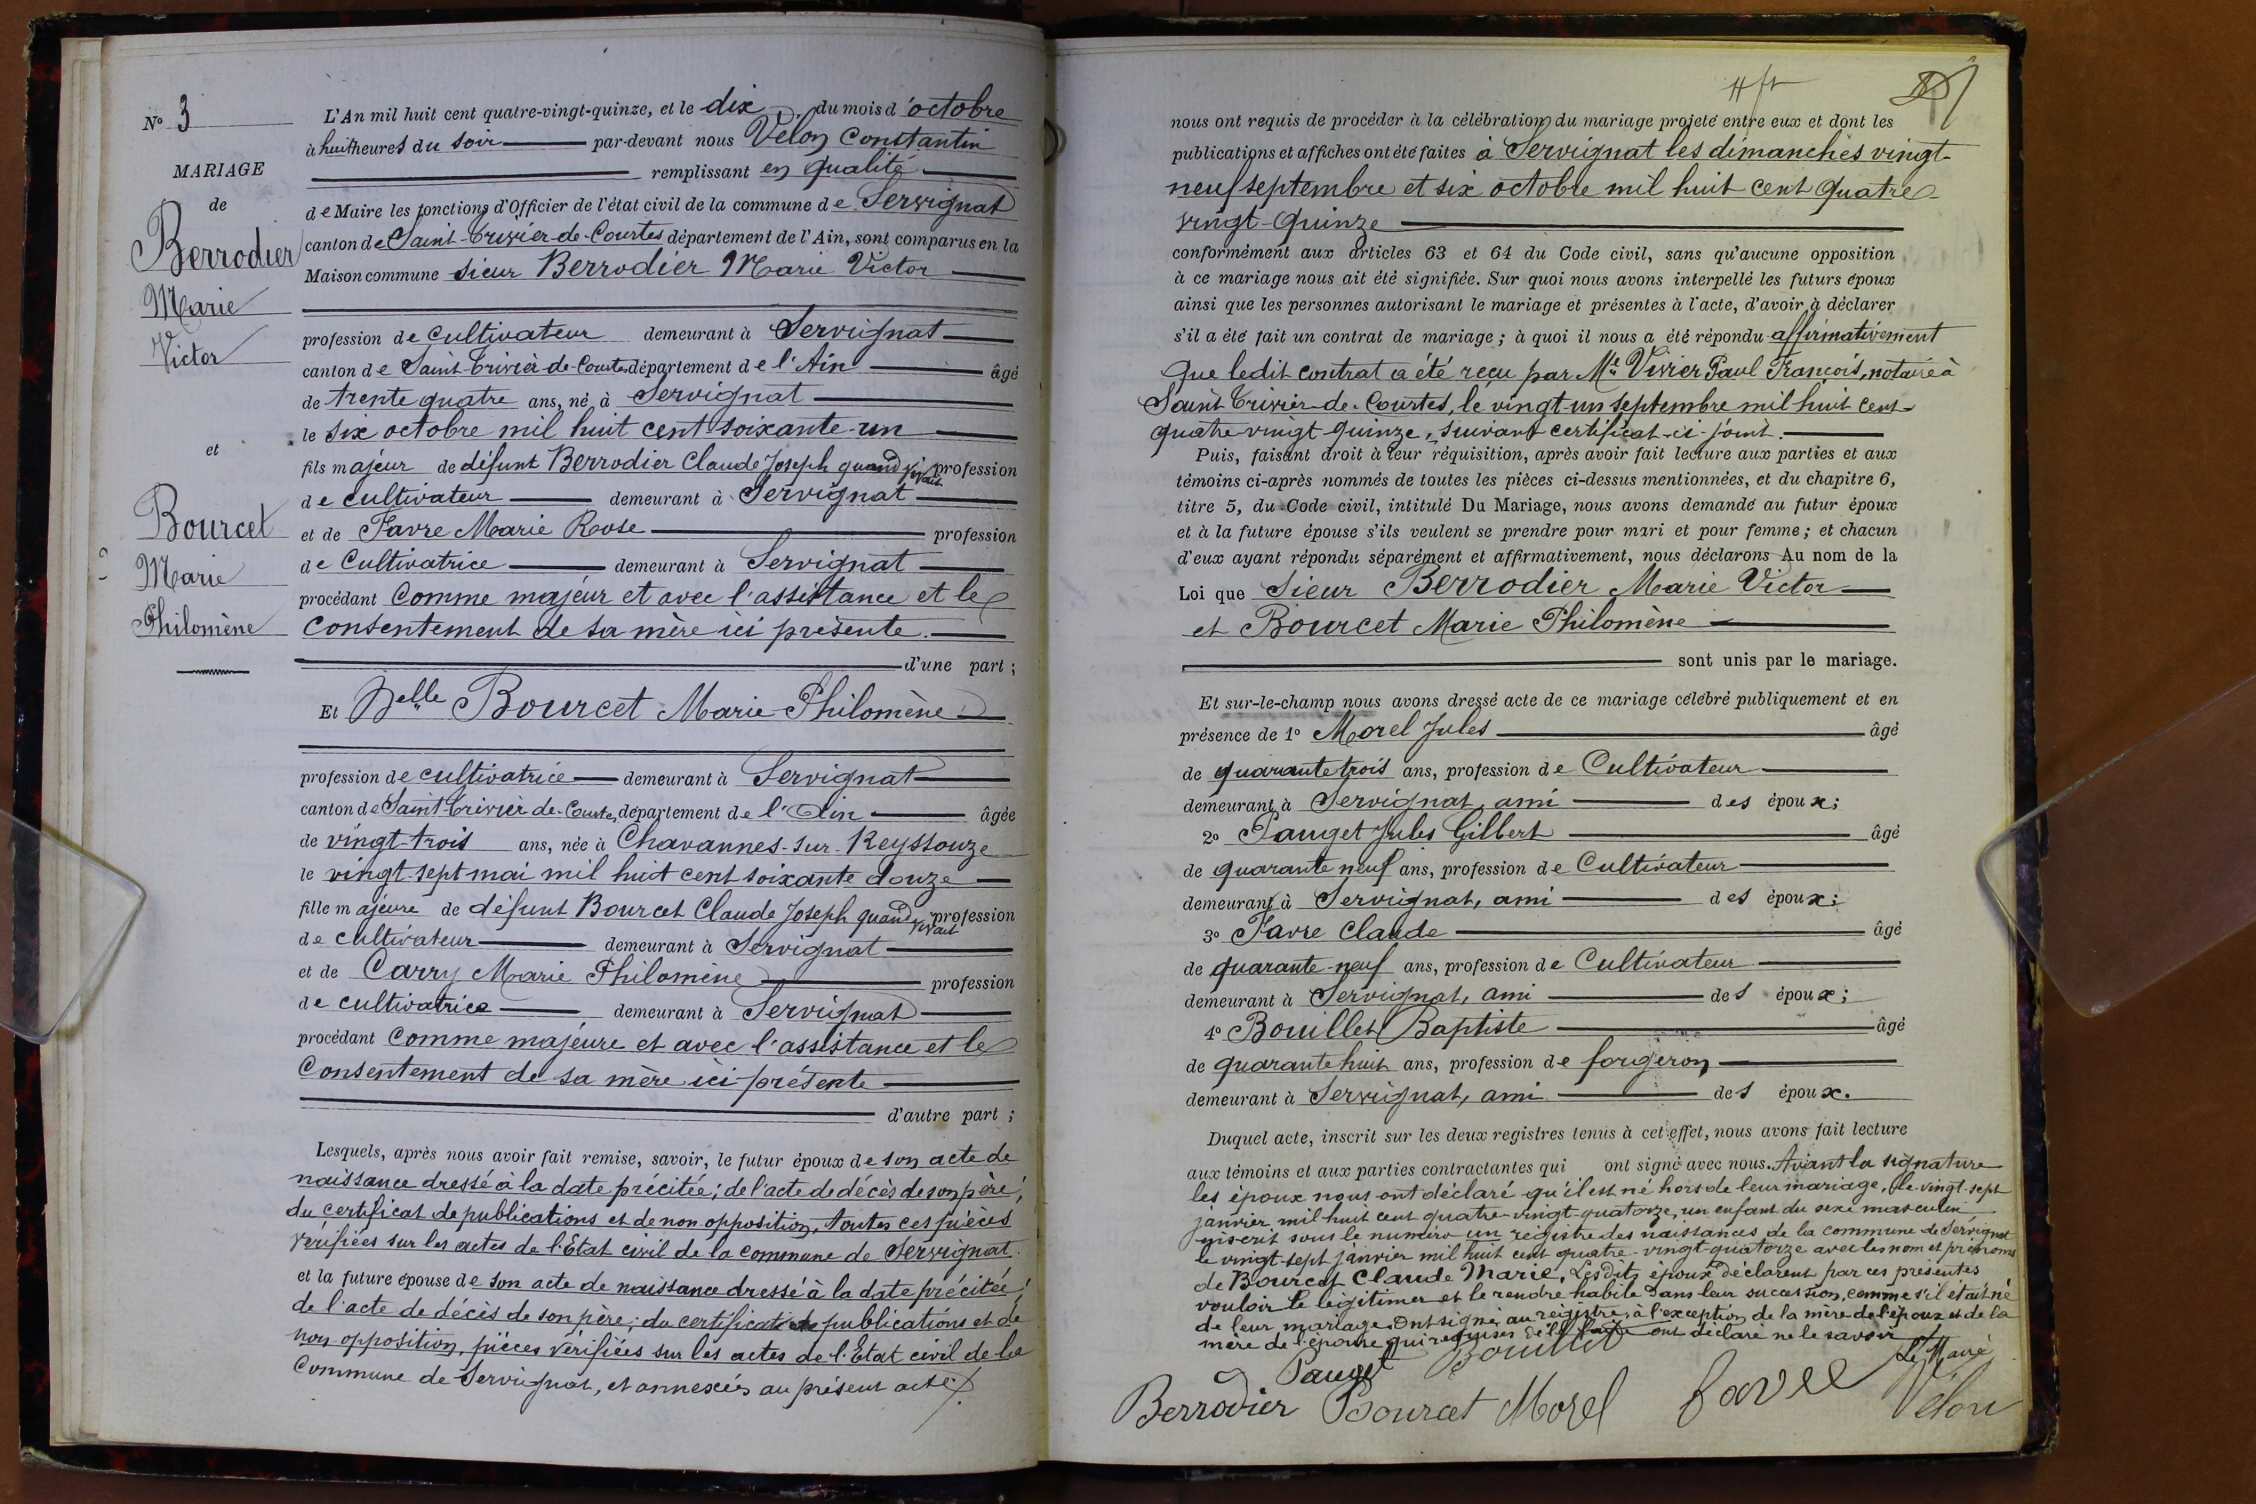 N° 3
MARIAGE
de
Berrodier
Marie
Victor
et
Bourcet
Marie
Philomène
L'An mil huit cent quatre-vingt-quinze, et le dix du mois d'octobre
à huit heures du soir par-devant nous Vélon Constantin
remplissant en qualité
de Maire les fonctions d'Officier de l'état civil de la commune de Servignat
canton de Saint-Trivier-de-Courtes département de l'Ain, sont comparus en la
Maison commune sieur Berrodier Marie Victor
profession de cultivateur demeurant à Servignat
canton de Saint-Trivier-de-Courtes département de l'Ain âgé
de trente quatre ans, né à Servignat
le six octobre mil huit cent soixante-un
fils majeur de défunt Berrodier Claude Joseph quand vivait profession
de cultivateur demeurant à Servignat
et de Favre Marie Rose profession
de Cultivatrice demeurant à Servignat
procédant Comme majeur et avec l'assistance et le
consentement de sa mère ici présente.
d'une part ;
Et Delle Bourcet Marie-Philomène
profession de cultivatrice demeurant à Servignat
canton de Saint-Trivier-de-Courtes département de l'Ain âgée
de vingt-trois ans, née à Chavannes-sur-Reyssouze
le vingt-sept mai mil huit cent soixante douze
fille majeure de défunt Bourcet Claude Joseph quand vivait profession
de cultivateur demeurant à Servignat
et de Carry Marie Philomène profession
de cultivatrice demeurant à Servignat
procédant comme majeure et avec l'assistance et le
Consentement de sa mère ici présente
d'autre part ;
Lesquels, après nous avoir fait remise, savoir, le futur époux de son acte de
naissance dressé à la date précitée ; de l'acte de décès de son père ;
du certificat de publications et de non opposition, toutes ces pièces
vérifiées sur les actes de l'Etat civil de la commune de Servignat.
et la future épouse de son acte de naissance dressé à la date précitée ;
de l'acte de décès de son père ; du certificat de publications et de
non opposition, pièces vérifiées sur les actes de l'Etat civil de la
Commune de Servignat, et annexées au présent acte.
nous ont requis de procéder à la célébration du mariage projeté entre eux et dont les
publications et affiches ont été faites à Servignat les dimanches vingt-
neuf septembre et six octobre mil huit cent quatre-
vingt-quinze
conformément aux articles 63 et 64 du Code civil, sans qu'aucune opposition
à ce mariage nous ait été signifiée. Sur quoi nous avons interpellé les futurs époux
ainsi que les personnes autorisant le mariage et présentes à l'acte, d'avoir à déclarer
s'il a été fait un contrat de mariage ; à quoi il nous a été répondu affirmativement
que ledit contrat a été reçu par Me Vivier Paul François, notaire à
Saint-Trivier-de-Courtes, le vingt-un septembre mil huit cent
quatre-vingt quinze, suivant certificat-ci-joint.
Puis, faisant droit à leur réquisition, après avoir fait lecture aux parties et aux
témoins ci-après nommés de toutes les pièces ci-dessus mentionnées, et du chapitre 6,
titre 5, du Code civil, intitulé Du Mariage, nous avons demandé au futur époux
et à la future épouse s'ils veulent se prendre pour mari et pour femme ; et chacun
d'eux ayant répondu séparément et affirmativement, nous déclarons Au nom de la
Loi que Sieur Berrodier Marie Victor
et Bourcet Marie Philomène
sont unis par le mariage.
Et sur-le-champ nous avons dressé acte de ce mariage célébré publiquement et en
présence de 1° Morel Jules âgé
de quarante trois ans, profession de Cultivateur
demeurant à Servignat, ami des époux ;
2° Pauget Jules Gilbert âgé
de quarante neuf ans, profession de Cultivateur
demeurant à Servignat, ami des époux ;
3° Favre Claude âgé
de quarante-neuf ans, profession de Cultivateur
demeurant à Servignat, ami des époux ;
4° Bouillet Baptiste âgé
de quarante huit ans, profession de forgeron
demeurant à Servignat, ami des époux.
Duquel acte, inscrit sur les deux registres tenus à cet effet, nous avons fait lecture
aux témoins et aux parties contractantes qui ont signé avec nous. Avant la signature
les époux nous ont déclaré qu'il est né hors de leur mariage, le vingt-sept
janvier mil huit cent quatre-vingt-quatorze, un enfant du sexe masculin
inscrit sous le numéro un registre des naissances de la commune de Servignat
le vingt-sept janvier mil huit cent quatre-vingt-quatorze avec les nom et prénoms
de Bourcet Claude Marie. Lesdits époux déclarent par ces présentes
vouloir le légitimer et le rendre habile dans leur succession, comme s'il était né
de leur mariage. Ont signé au registre, à l'exception de la mère de l'époux et de la
mère de l'épouse qui requises de le faire ont déclaré ne le savoir
Pauget Bouillet Le Maire
Berrodier Bourcet Morel favre Vélon